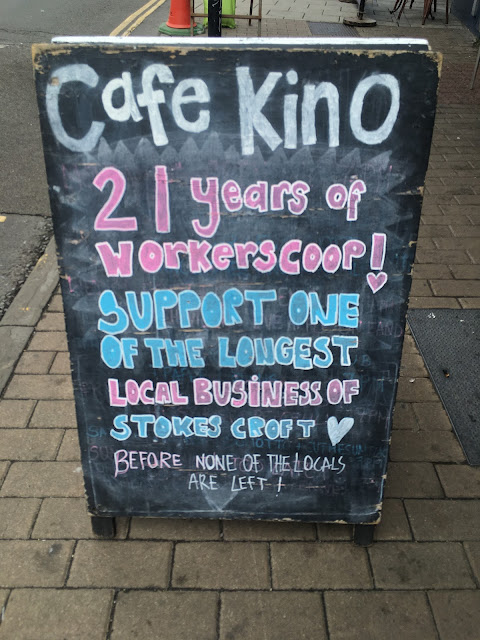 Cafe Kino
21 years of
workerscoop!
SUPPORT ONE
OF THE LONGEST
LOCAL BUSINESS OF
STOKES CROFT
BEFORE NONE OF THE LOCALS
ARE LEFT!